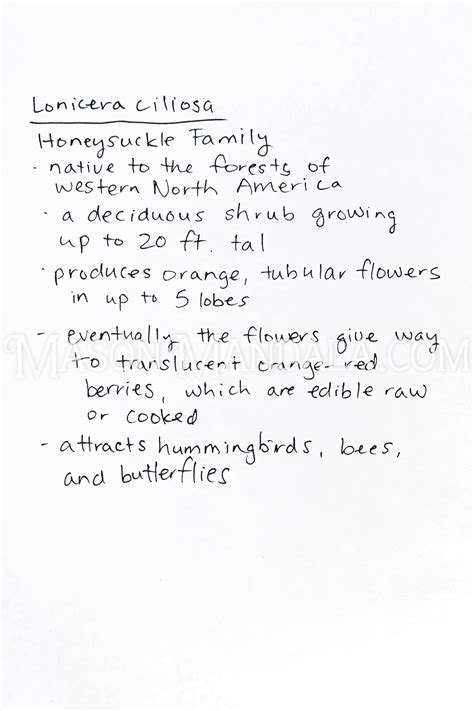 Lonicera ciliosa
Honeysuckle Family
· native to the forests of
western North America
· a deciduous shrub growing
up to 20 ft. tal
· produces orange, tubular flowers
in up to 5 lobes
- eventually the flowers give way
MASON MANDALA.COM
to translucent orange-red
berries, which are edible raw
or cooked
- attracts hummingbirds, bees,
and butterflies